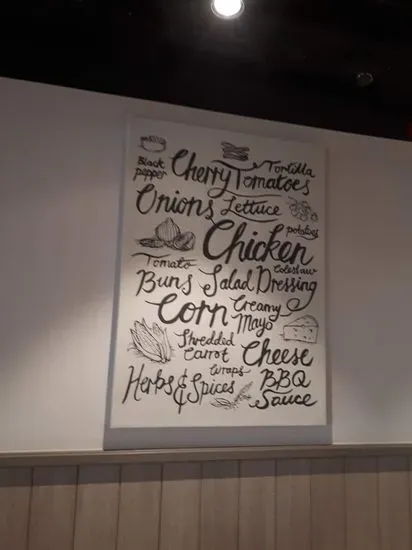 Black pepper
Tortilla
Cherry Tomatoes
Onions Lettuce
potatoes
Chicken
Tomato
Coleslaw
Buns Salad Dressing
Corn
Creamy Mayo
Shredded Carrot
Cheese
Wraps
Herbs & Spices
BBQ Sauce